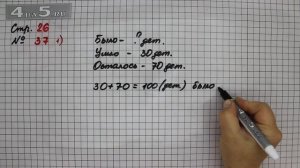 4 а 5 RU
Стр. 26
№ 37 1)
Было - ? дет.
Ушло - 30 дет.
Осталось - 70 дет.
30 + 70 = 100 (дет.) было